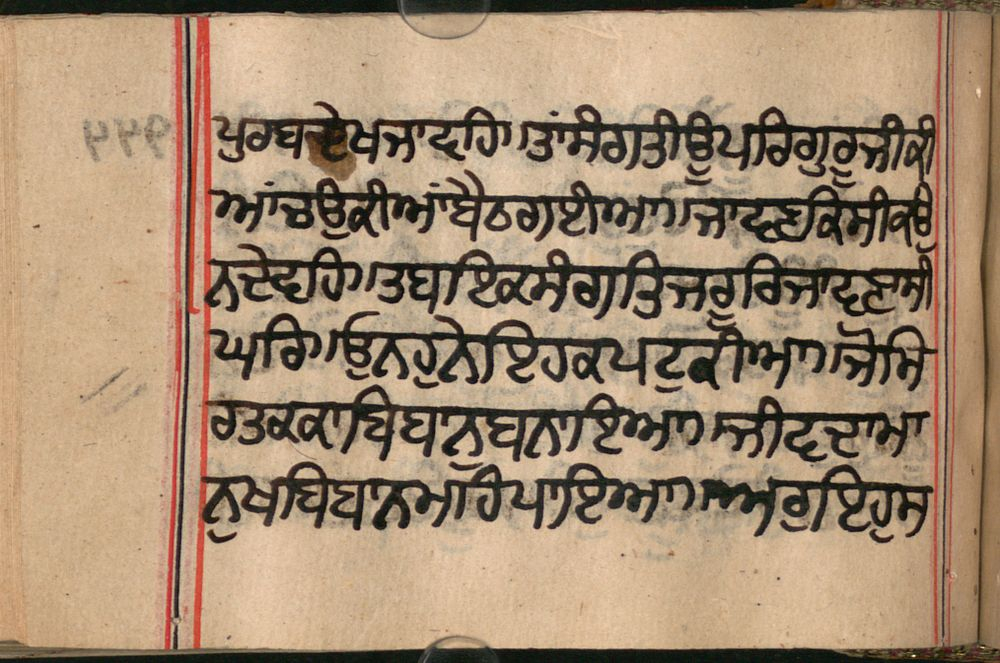 ਪੁਰਬ ਦੇਖ ਜਾਵਹਿ। ਤਾਂ ਸੰਗਤੀ ਊਪਰਿ ਗੁਰੂ ਜੀ ਕੀ
ਆਂ ਚਉਕੀਆਂ ਬੈਠ ਗਈਆ॥ ਜਾਵਣ ਕਿਸੀ ਕਉ
ਨ ਦੇਵਹਿ॥ ਤਬ ਇਕ ਸੰਗਤਿ ਜਰੂਰਿ ਜਾਵਣਾ ਸੀ
ਘਰਿ॥ ਉਨਹੁ ਨੇ ਇਹ ਕਪਟੁ ਕੀਆ॥ ਜੋ ਮਿ
ਰਤਕ ਕਾ ਬਿਬਾਨੁ ਬਨਾਇਆ॥ ਜੀਵਦਾ ਮਾ
ਨੁਖ ਬਿਬਾਨ ਮਾਹਿ ਪਾਇਆ॥ ਅਰੁ ਇਹੁ ਸ